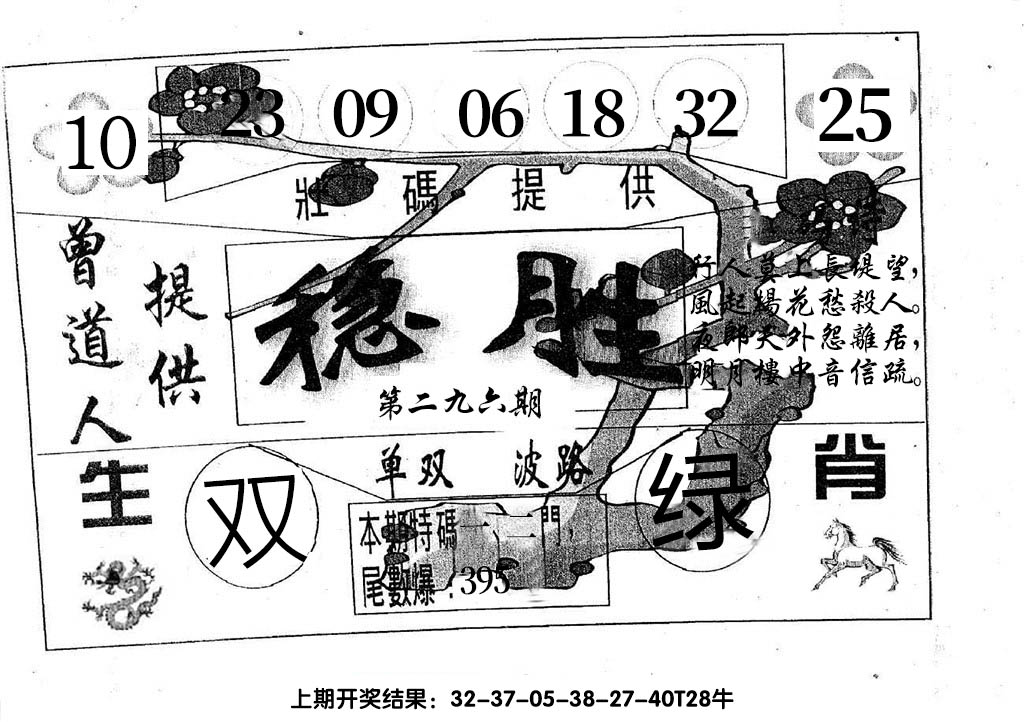 10 23 09 06 18 32 25
壯碼提供
曾道人
提供
稳胜
第二九六期
特
行人莫上長堤望，
風起楊花愁殺人。
夜郎天外怨離居，
明月樓中音信疏。
单双 波路
生 双 绿 肖
本期特碼一、二門，
尾數爆:395
上期开奖结果：32-37-05-38-27-40T28牛